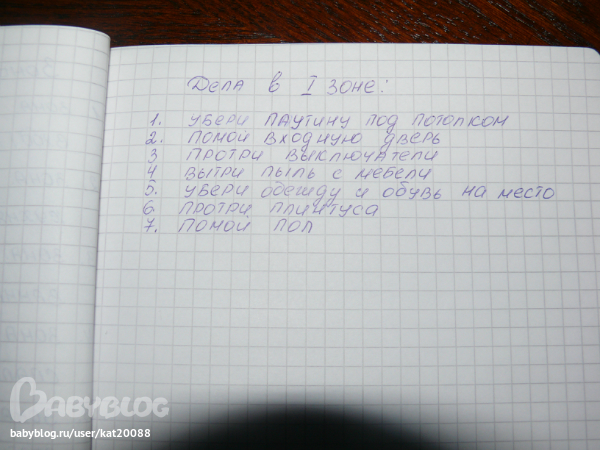 Дела в I зоне:
1. УБЕРИ ПАУТИНУ ПОД ПОТОЛКОМ
2. ПОМОЙ ВХОДНУЮ ДВЕРЬ
3 ПРОТРИ ВЫКЛЮЧАТЕЛИ
4 ВЫТРИ ПЫЛЬ С МЕБЕЛИ
5. УБЕРИ ОДЕЖДУ И ОБУВЬ НА МЕСТО
6 ПРОТРИ ПЛИНТУСА
7. ПОМОЙ ПОЛ
BABYBLOG
babyblog.ru/user/kat20088